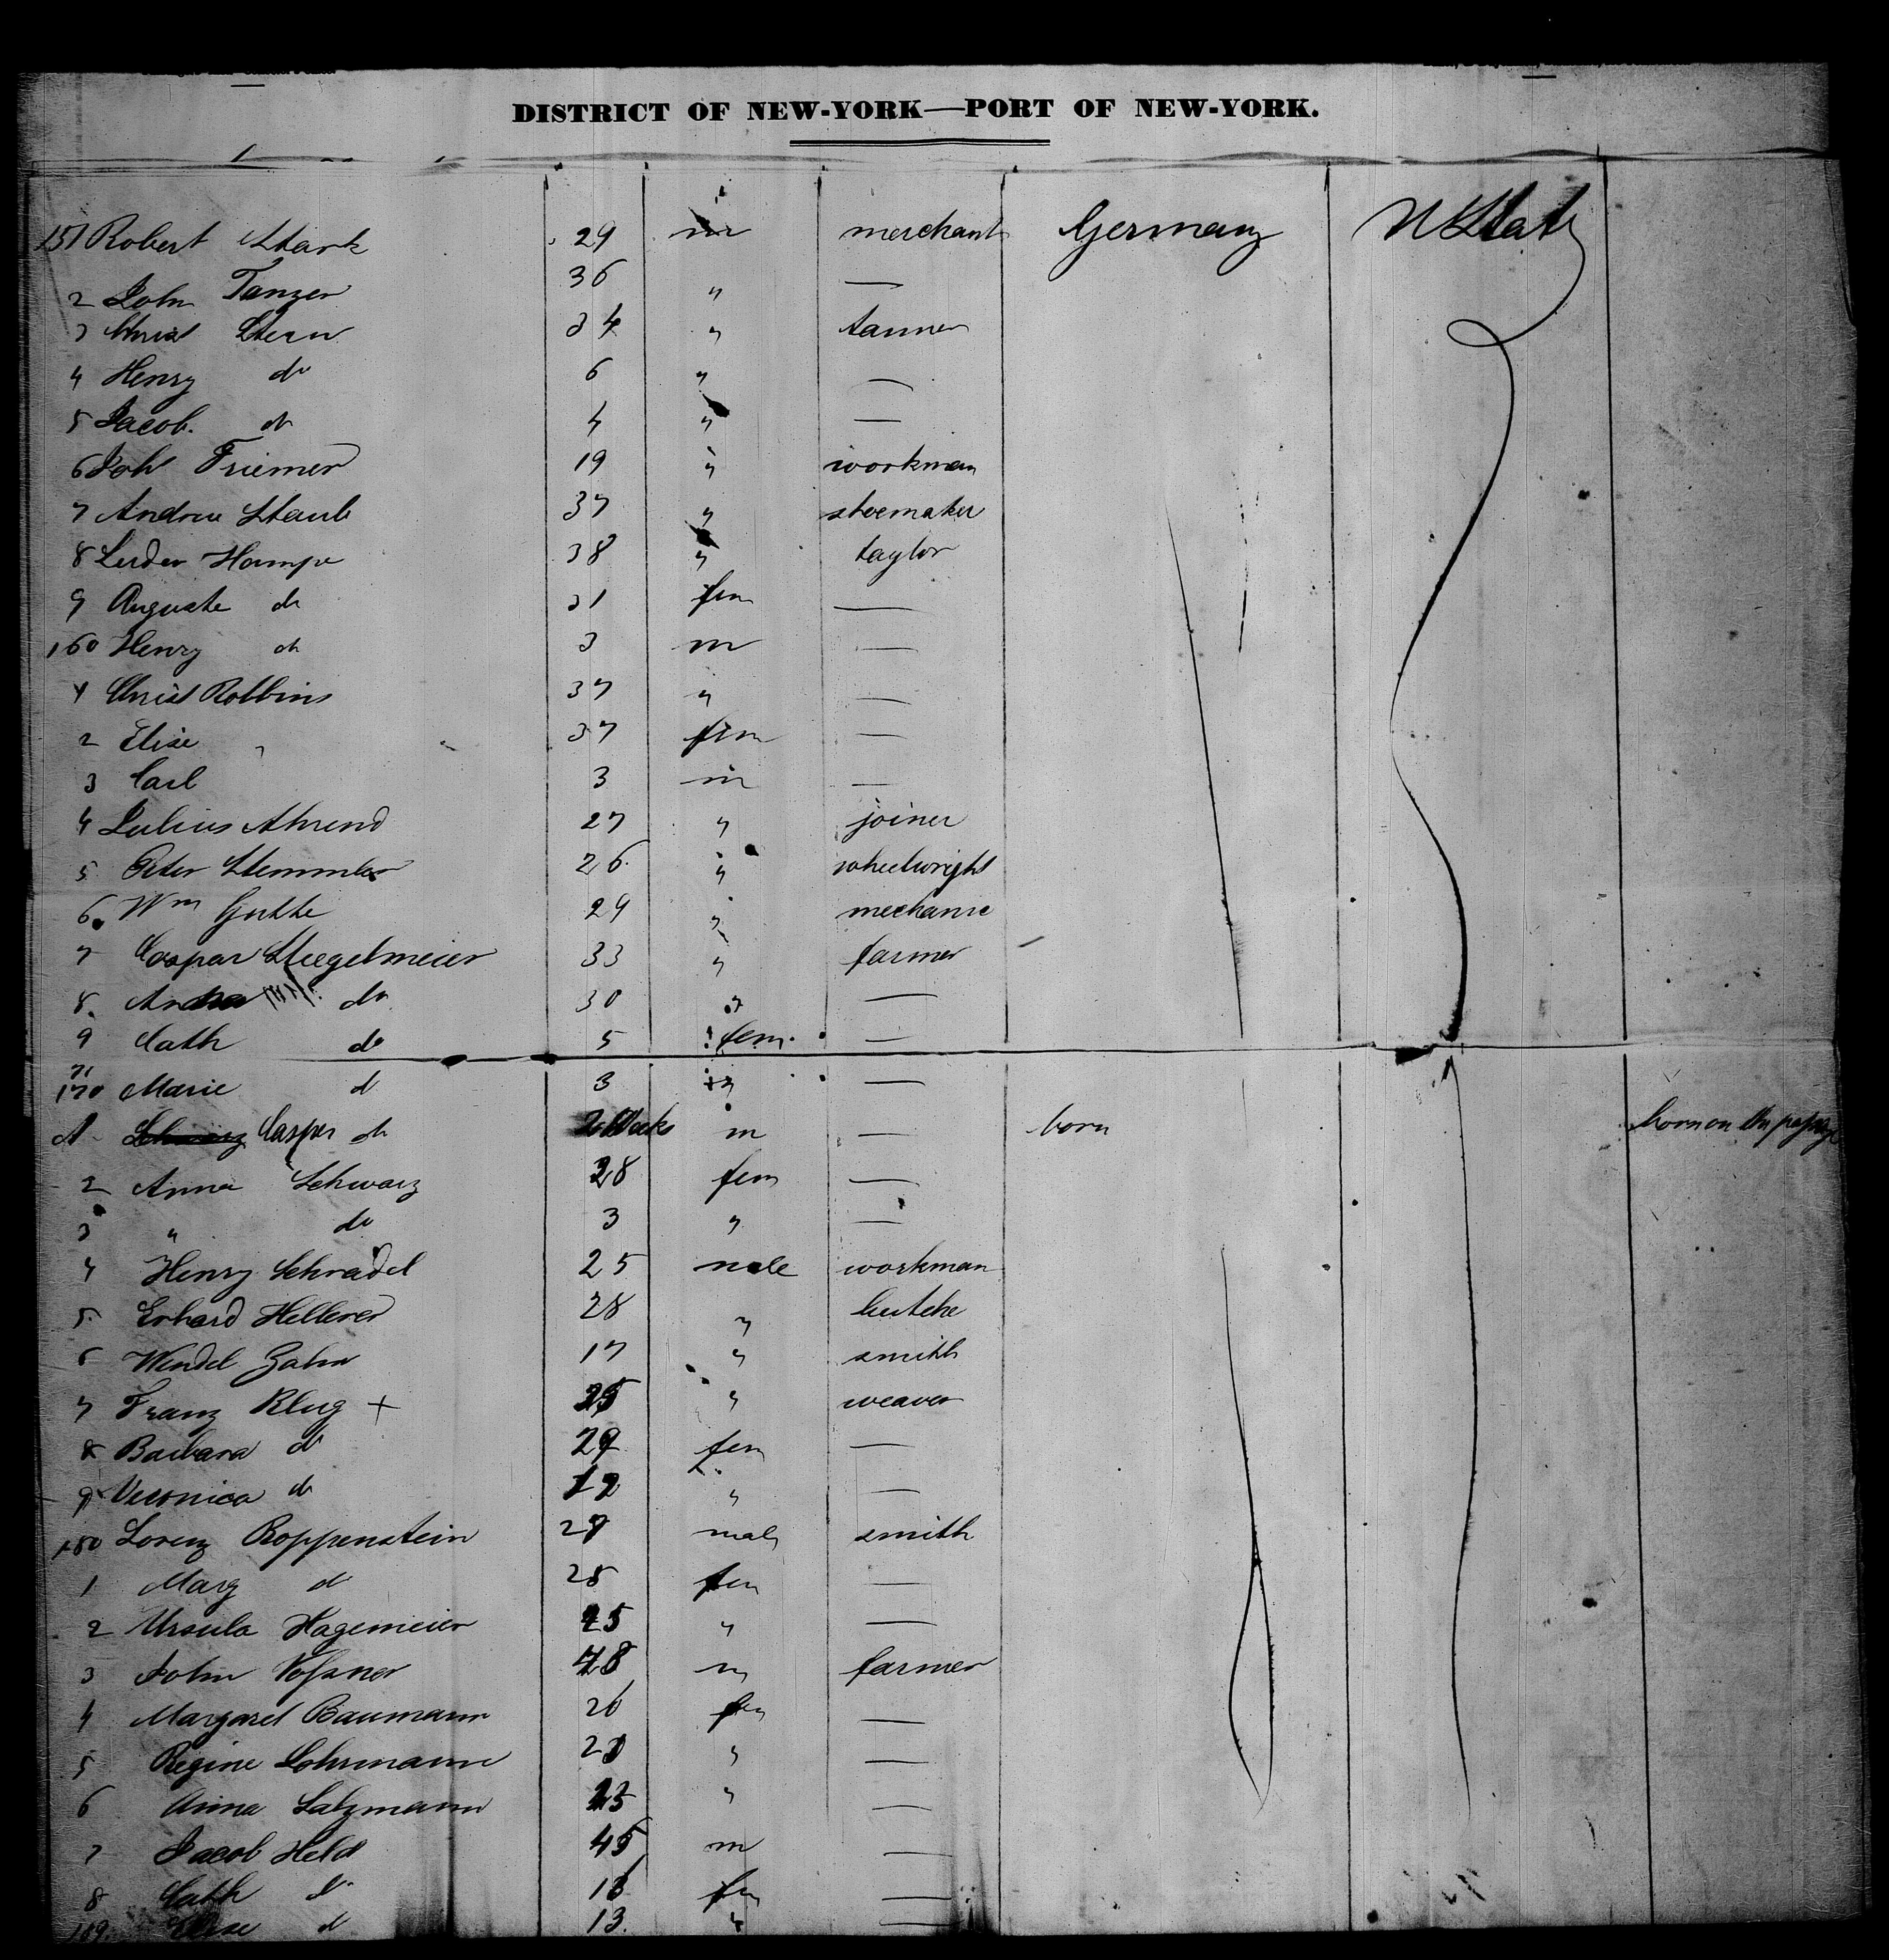 DISTRICT OF NEW-YORK—PORT OF NEW-YORK.
151 Robert Stark 29 m merchant Germany U State
2 John Tanzer 36 " —
3 Christ Stern 34 " tanner
4 Henry do 6 " —
5 Jacob. do 4 " —
6 Joh Friemer 19 " workman
7 Andreu Staub 37 " shoemaker
8 Hampe 38 " taylor
9 Auguste do 31 fem —
160 Henry do 3 m —
1 Christ Robbins 37 " —
2 Elise " 37 fem —
3 Carl 3 m —
4 Julius Ahrend 27 " joiner
5 Peter Stemmler 26 " wheelwright
6 Wm Gutte 29 " mechanic
7 Caspar Stiegelmeier 33 " farmer
8 do 30 " —
9 Cath do 5 fem. —
170 Marie d 3 " —
1 Casper do 2 Weeks m — born born on the passage
2 Anna Schwarz 28 fem —
3 " do 3 " —
4 Henry Schradel 25 male workman
5 Erhard Hellerer 28 " butche
6 Wendel Zahn 17 " smith
7 Franz Klug + 25 " weaver
8 Barbara d 29 fem —
9 Veronica do 12 " —
180 Lorenz Roppenstein 27 male smith
1 Marg d 28 fem —
2 Ursula Hagemeier 25 " —
3 John Vossner 28 m farmer
4 Margaret Baumann 26 fem —
5 Regine Lohrmann " —
6 Anna Salzmann 23 " —
7 Jacob Held 45 m —
8 Cath d fem —
189. Elise d 13. " —